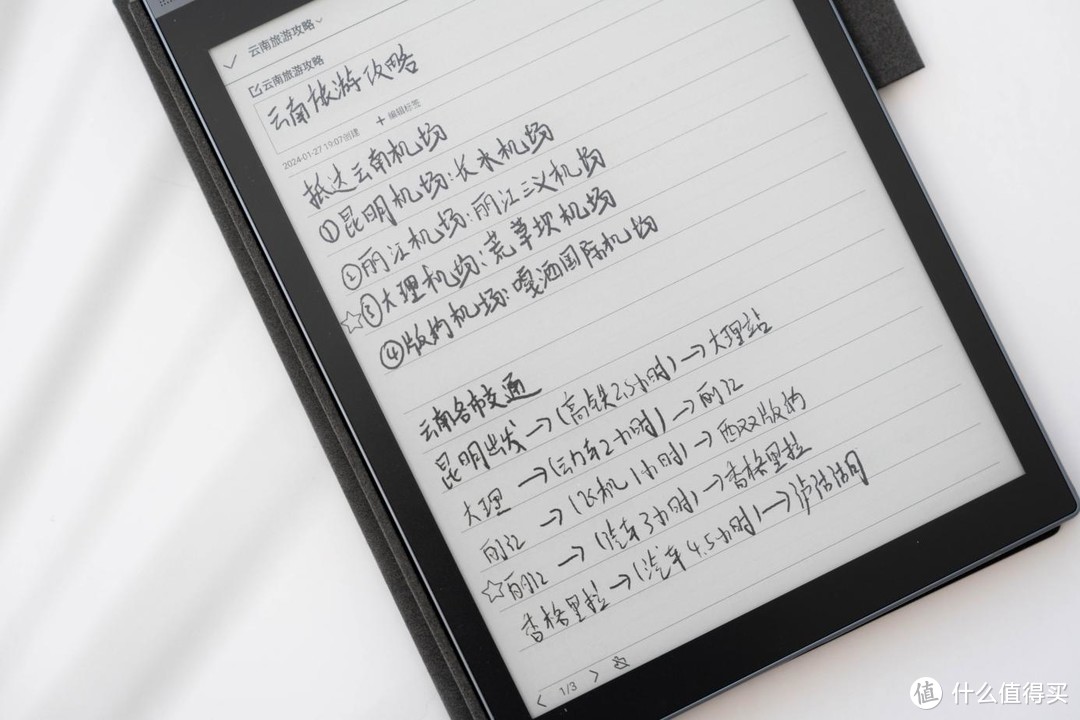 云南旅游攻略
云南旅游攻略
云南旅游攻略
2024-01-27 19:07创建 + 编辑标签
抵达云南机场
①昆明机场:长水机场
②丽江机场:丽江三义机场
☆③大理机场:荒草坝机场
④版纳机场:嘎洒国际机场
云南各市交通
昆明出发→(高铁2.5小时)→大理站
大理→(动车2小时)→丽江
丽江→(飞机1小时)→西双版纳
☆丽江→(汽车3小时)→香格里拉
香格里拉→(汽车4.5小时)→泸沽湖
1/3
值 什么值得买